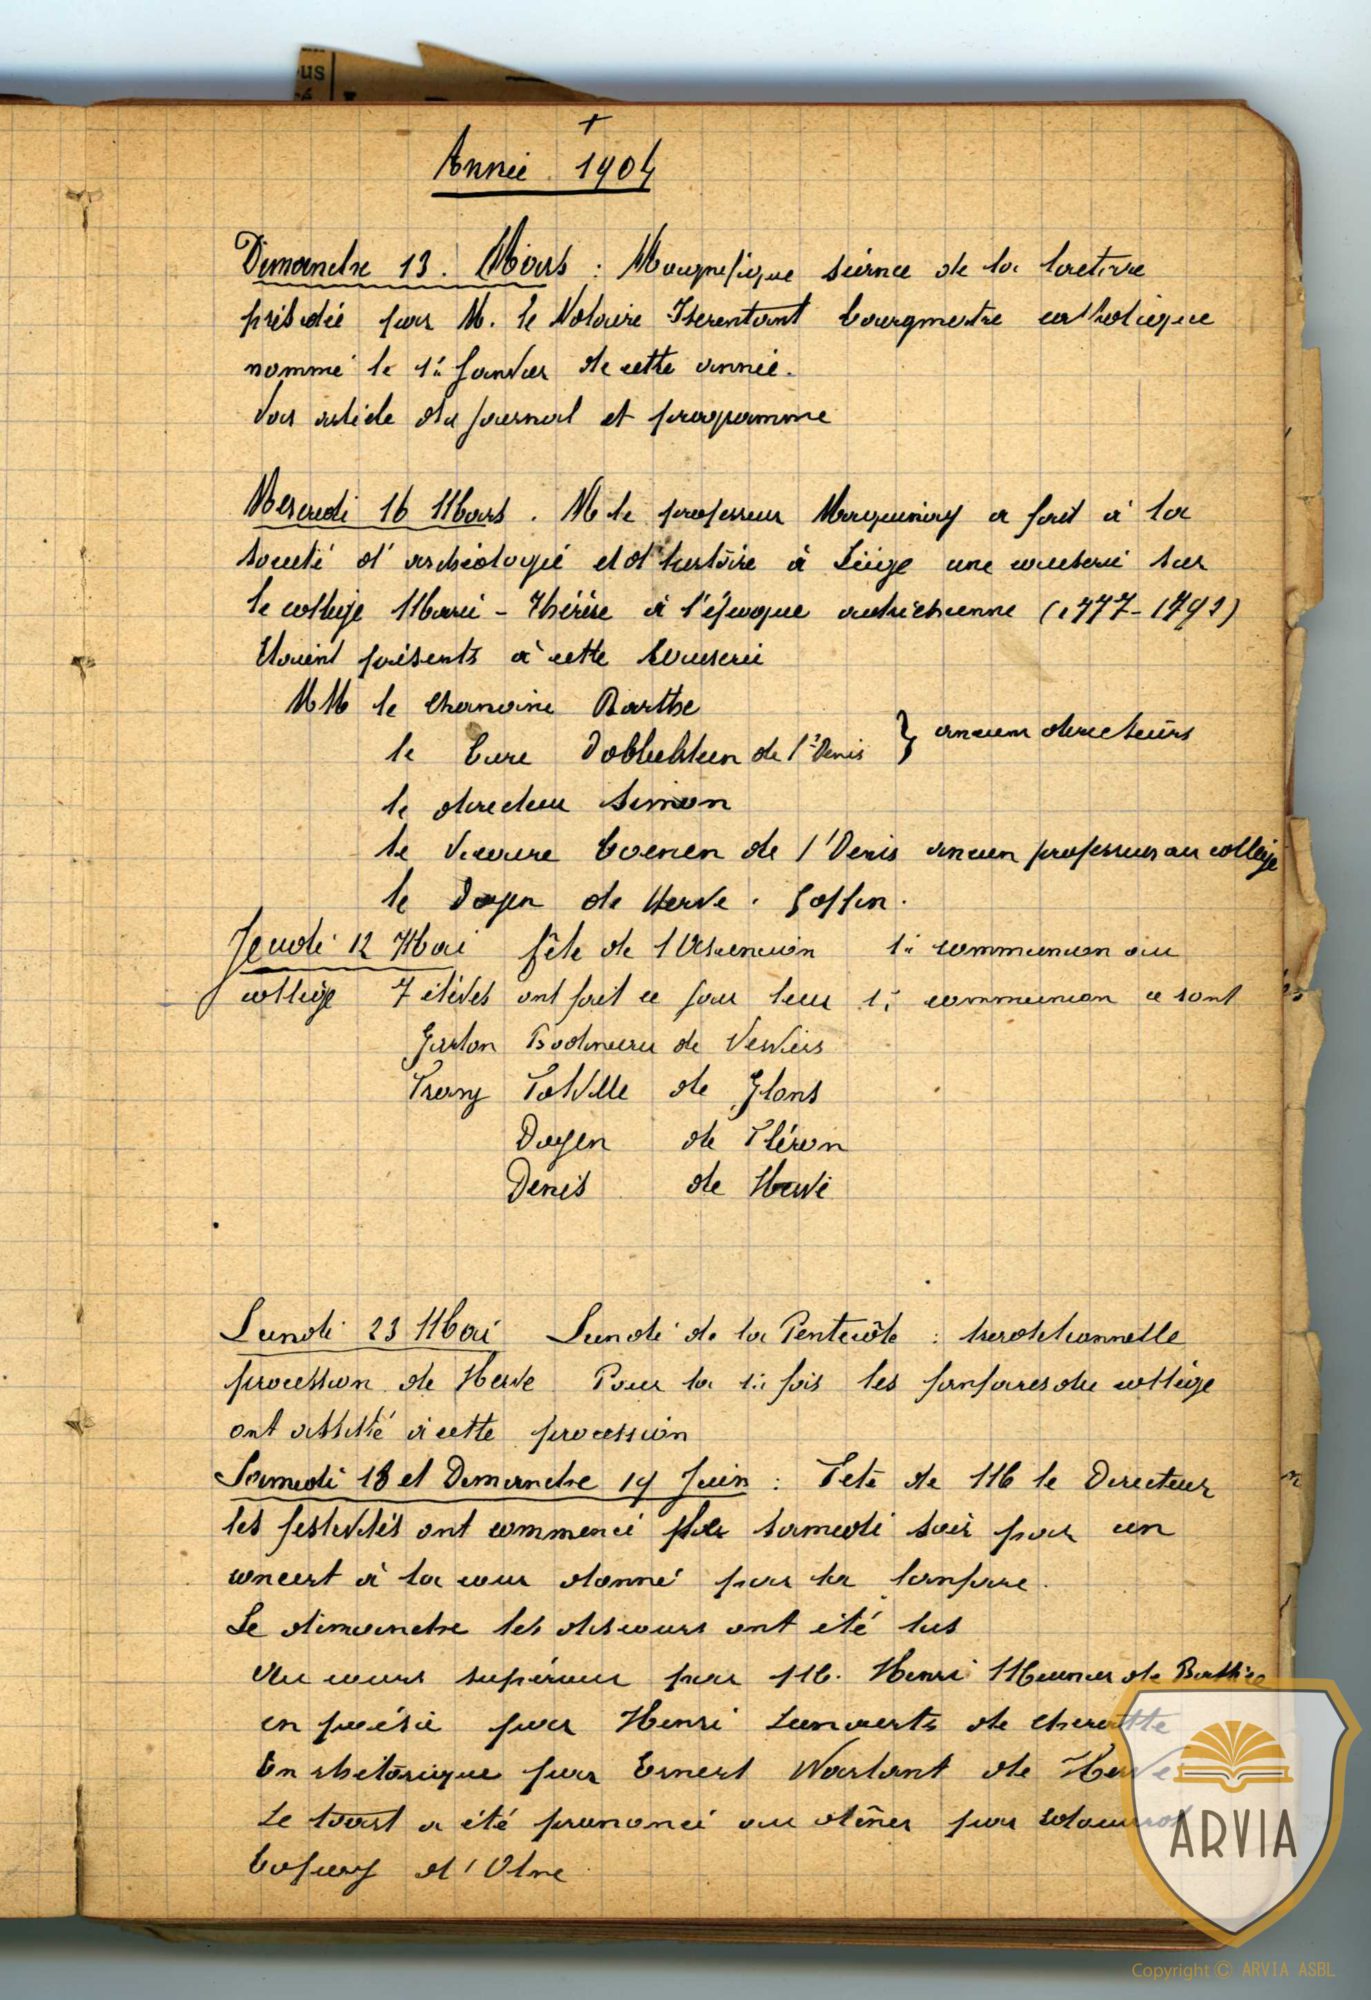 us
+
Année 1904
Dimanche 13. Mars : Magnifique séance de la
présidée par M. le Notaire Iserentant bourgmestre catholique
nommé le 1er Janvier de cette année.
Voir article du journal et programme
Mercredi 16 Mars. M le professeur Maquinay a fait à la
société d'archéologie et d'histoire à Liège une causerie sur
le collège Marie-Thérèse à l'époque autrichienne (1777-
Etaient présents à cette causerie
MM le chanoine Barthe
le Curé de St Denis } anciens directeurs
le directeur Simon
le vicaire Coenen de St Denis ancien professeur au collège
le Doyen de Herve. Goffin.
Jeudi 12 Mai fête de l'Ascension 1è communion au
collège 7 élèves ont fait ce jour leur 1è communion ce sont
Gaston de Verviers
de Glons
Doyen de Fléron
Denis de Herve
Lundi 23 Mai Lundi de la Pentecôte : traditionnelle
procession de Herve Pour la 1è fois les fanfares du collège
ont assisté à cette procession
Samedi 18 et Dimanche 19 Juin : Fête de M le Directeur
les festivités ont commencé samedi soir par un
concert à la cour donné par la fanfare.
Le dimanche les discours ont été lus
Au cours supérieur par M. Henri Meunier de Battice
en poésie par Henri Lannaerts de cheratte
En rhétorique par Ernest Warlant de Herve
Le toast a été prononcé au dîner par
d'Olne
ARVIA
Copyright © ARVIA ASBL